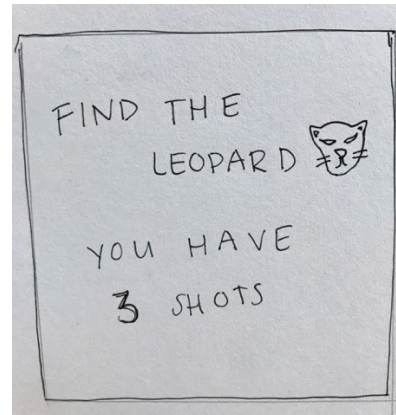 FIND THE
LEOPARD
YOU HAVE
3 SHOTS